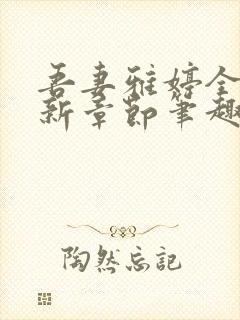 吾妻雅婷全
新章节笔趣
陶然忘记